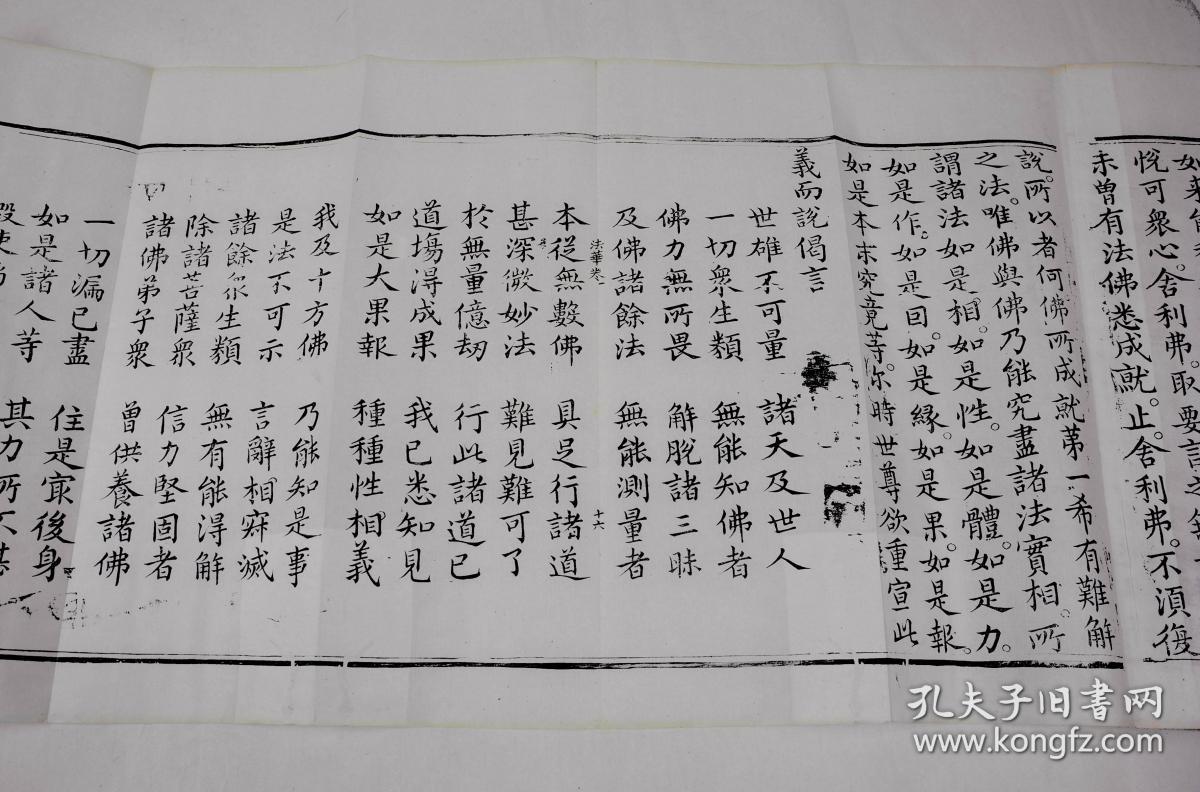 悅可衆心。舍利弗。取要言之
未曾有法佛悉成就。止。舍利弗。不須復
說。所以者何佛所成就第一希有難解
之法。唯佛與佛乃能究盡諸法實相。所
謂諸法如是相。如是性。如是體。如是力。
如是作。如是因。如是緣。如是果。如是報。
如是本末究竟等。爾時世尊欲重宣此
義而說偈言
世雄不可量 諸天及世人
一切衆生類 無能知佛者
佛力無所畏 解脫諸三昧
及佛諸餘法 無能測量者
法華卷一 十六
本從無數佛 具足行諸道
甚深微妙法 難見難可了
於無量億劫 行此諸道已
道場得成果 我已悉知見
如是大果報 種種性相義
我及十方佛 乃能知是事
是法不可示 言辭相寂滅
諸餘衆生類 無有能得解
除諸菩薩衆 信力堅固者
諸佛弟子衆 曾供養諸佛
一切漏已盡 住是最後身
如是諸人等 其力所不堪
孔夫子旧书网
www.kongfz.com